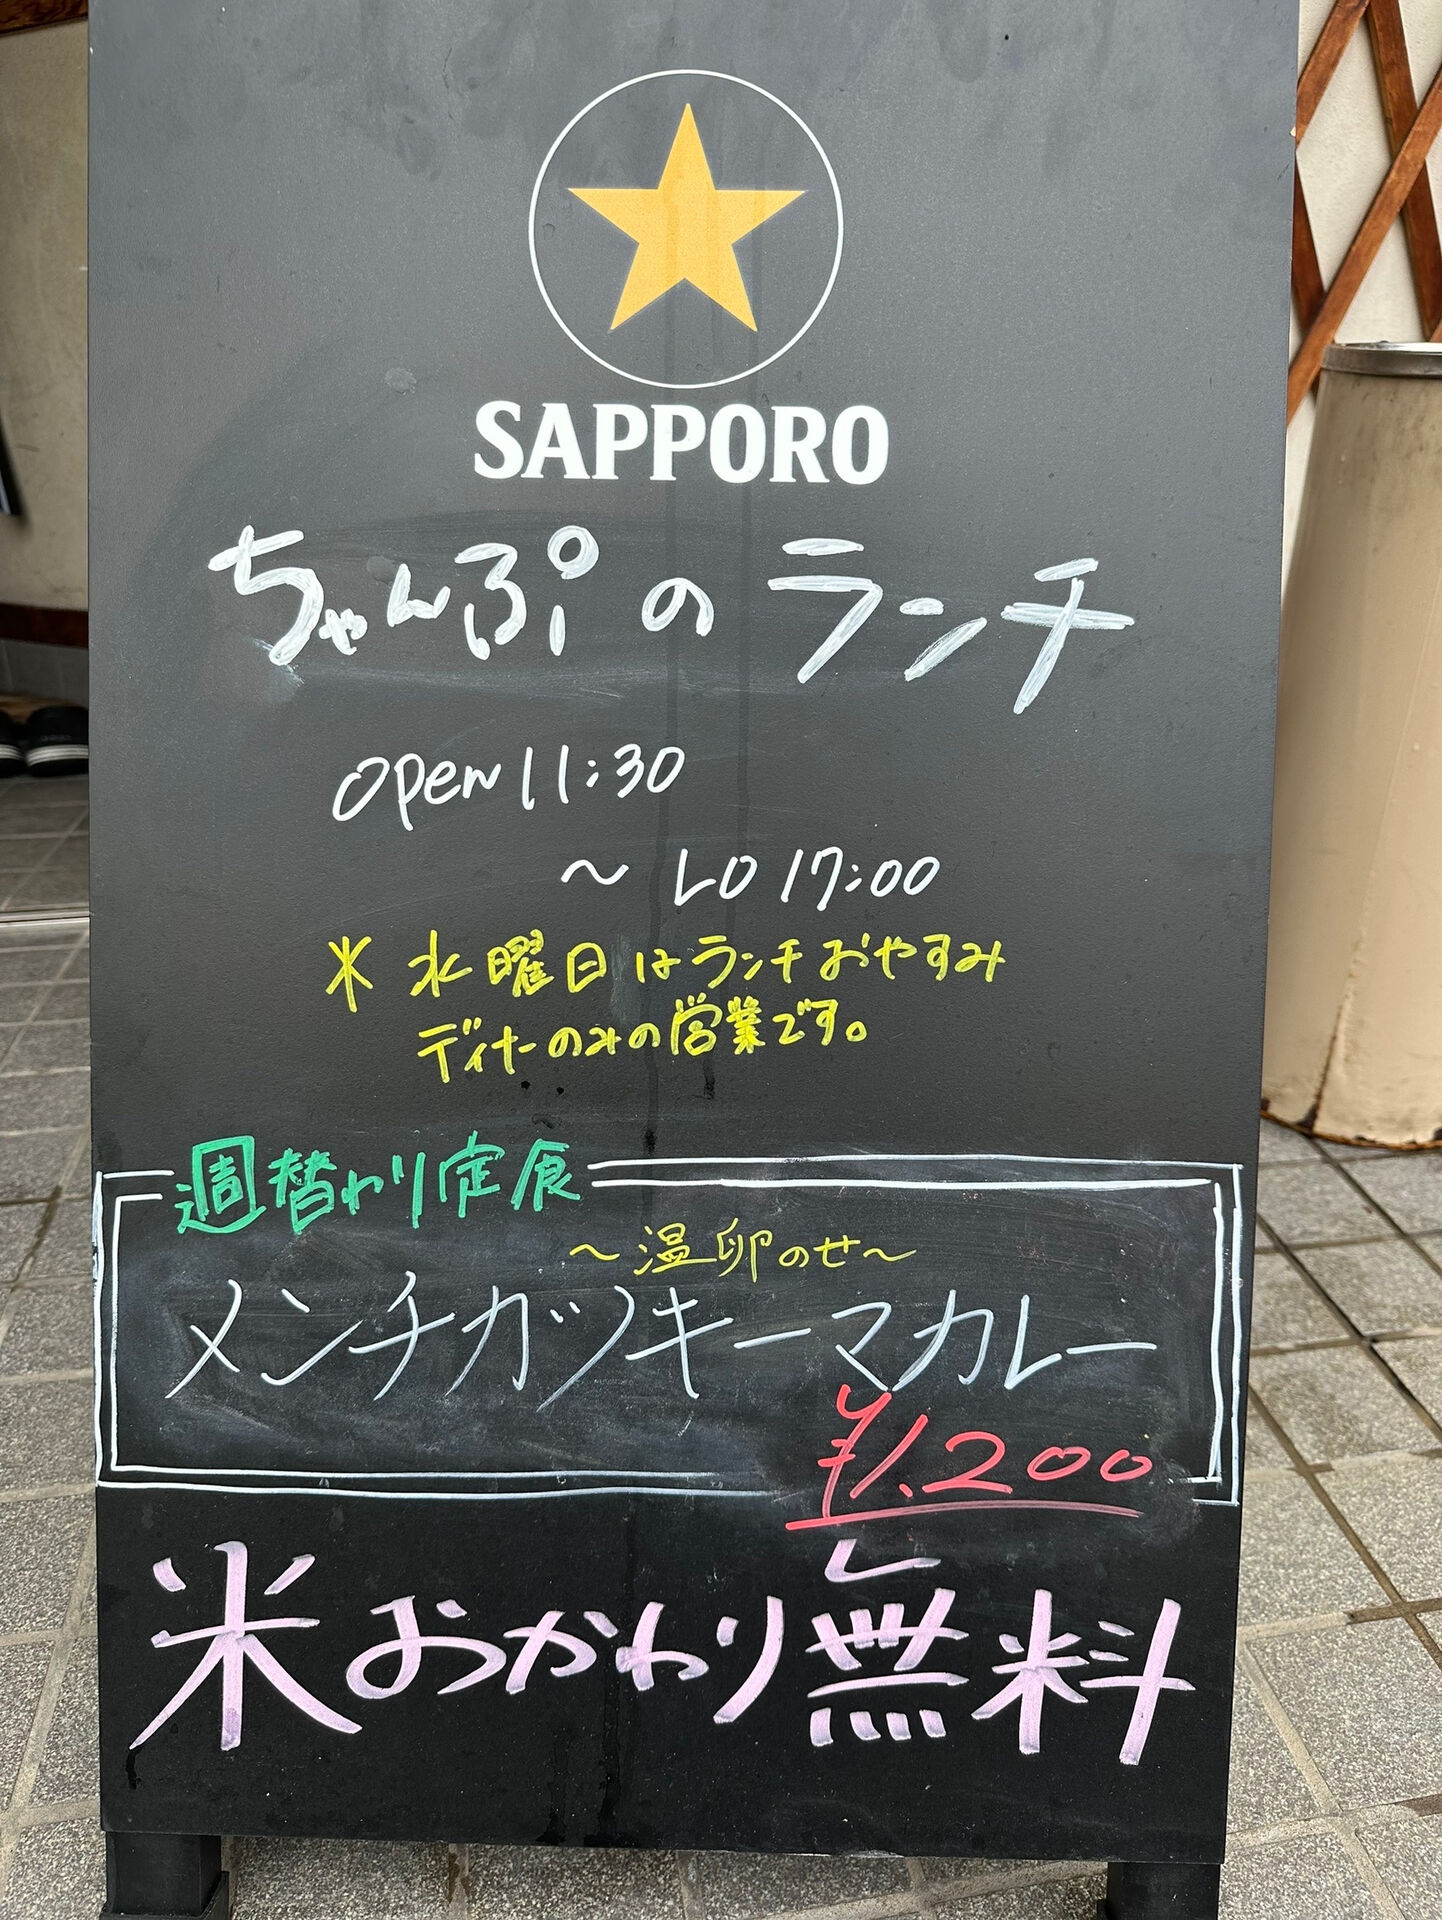 SAPPORO
ちゃんぷのランチ
open 11:30
〜 LO 17:00
* 水曜日はランチおやすみ
ディナーのみの営業です。
週替わり定食
〜温卵のせ〜
メンチカツキーマカレー
¥1,200
米おかわり無料